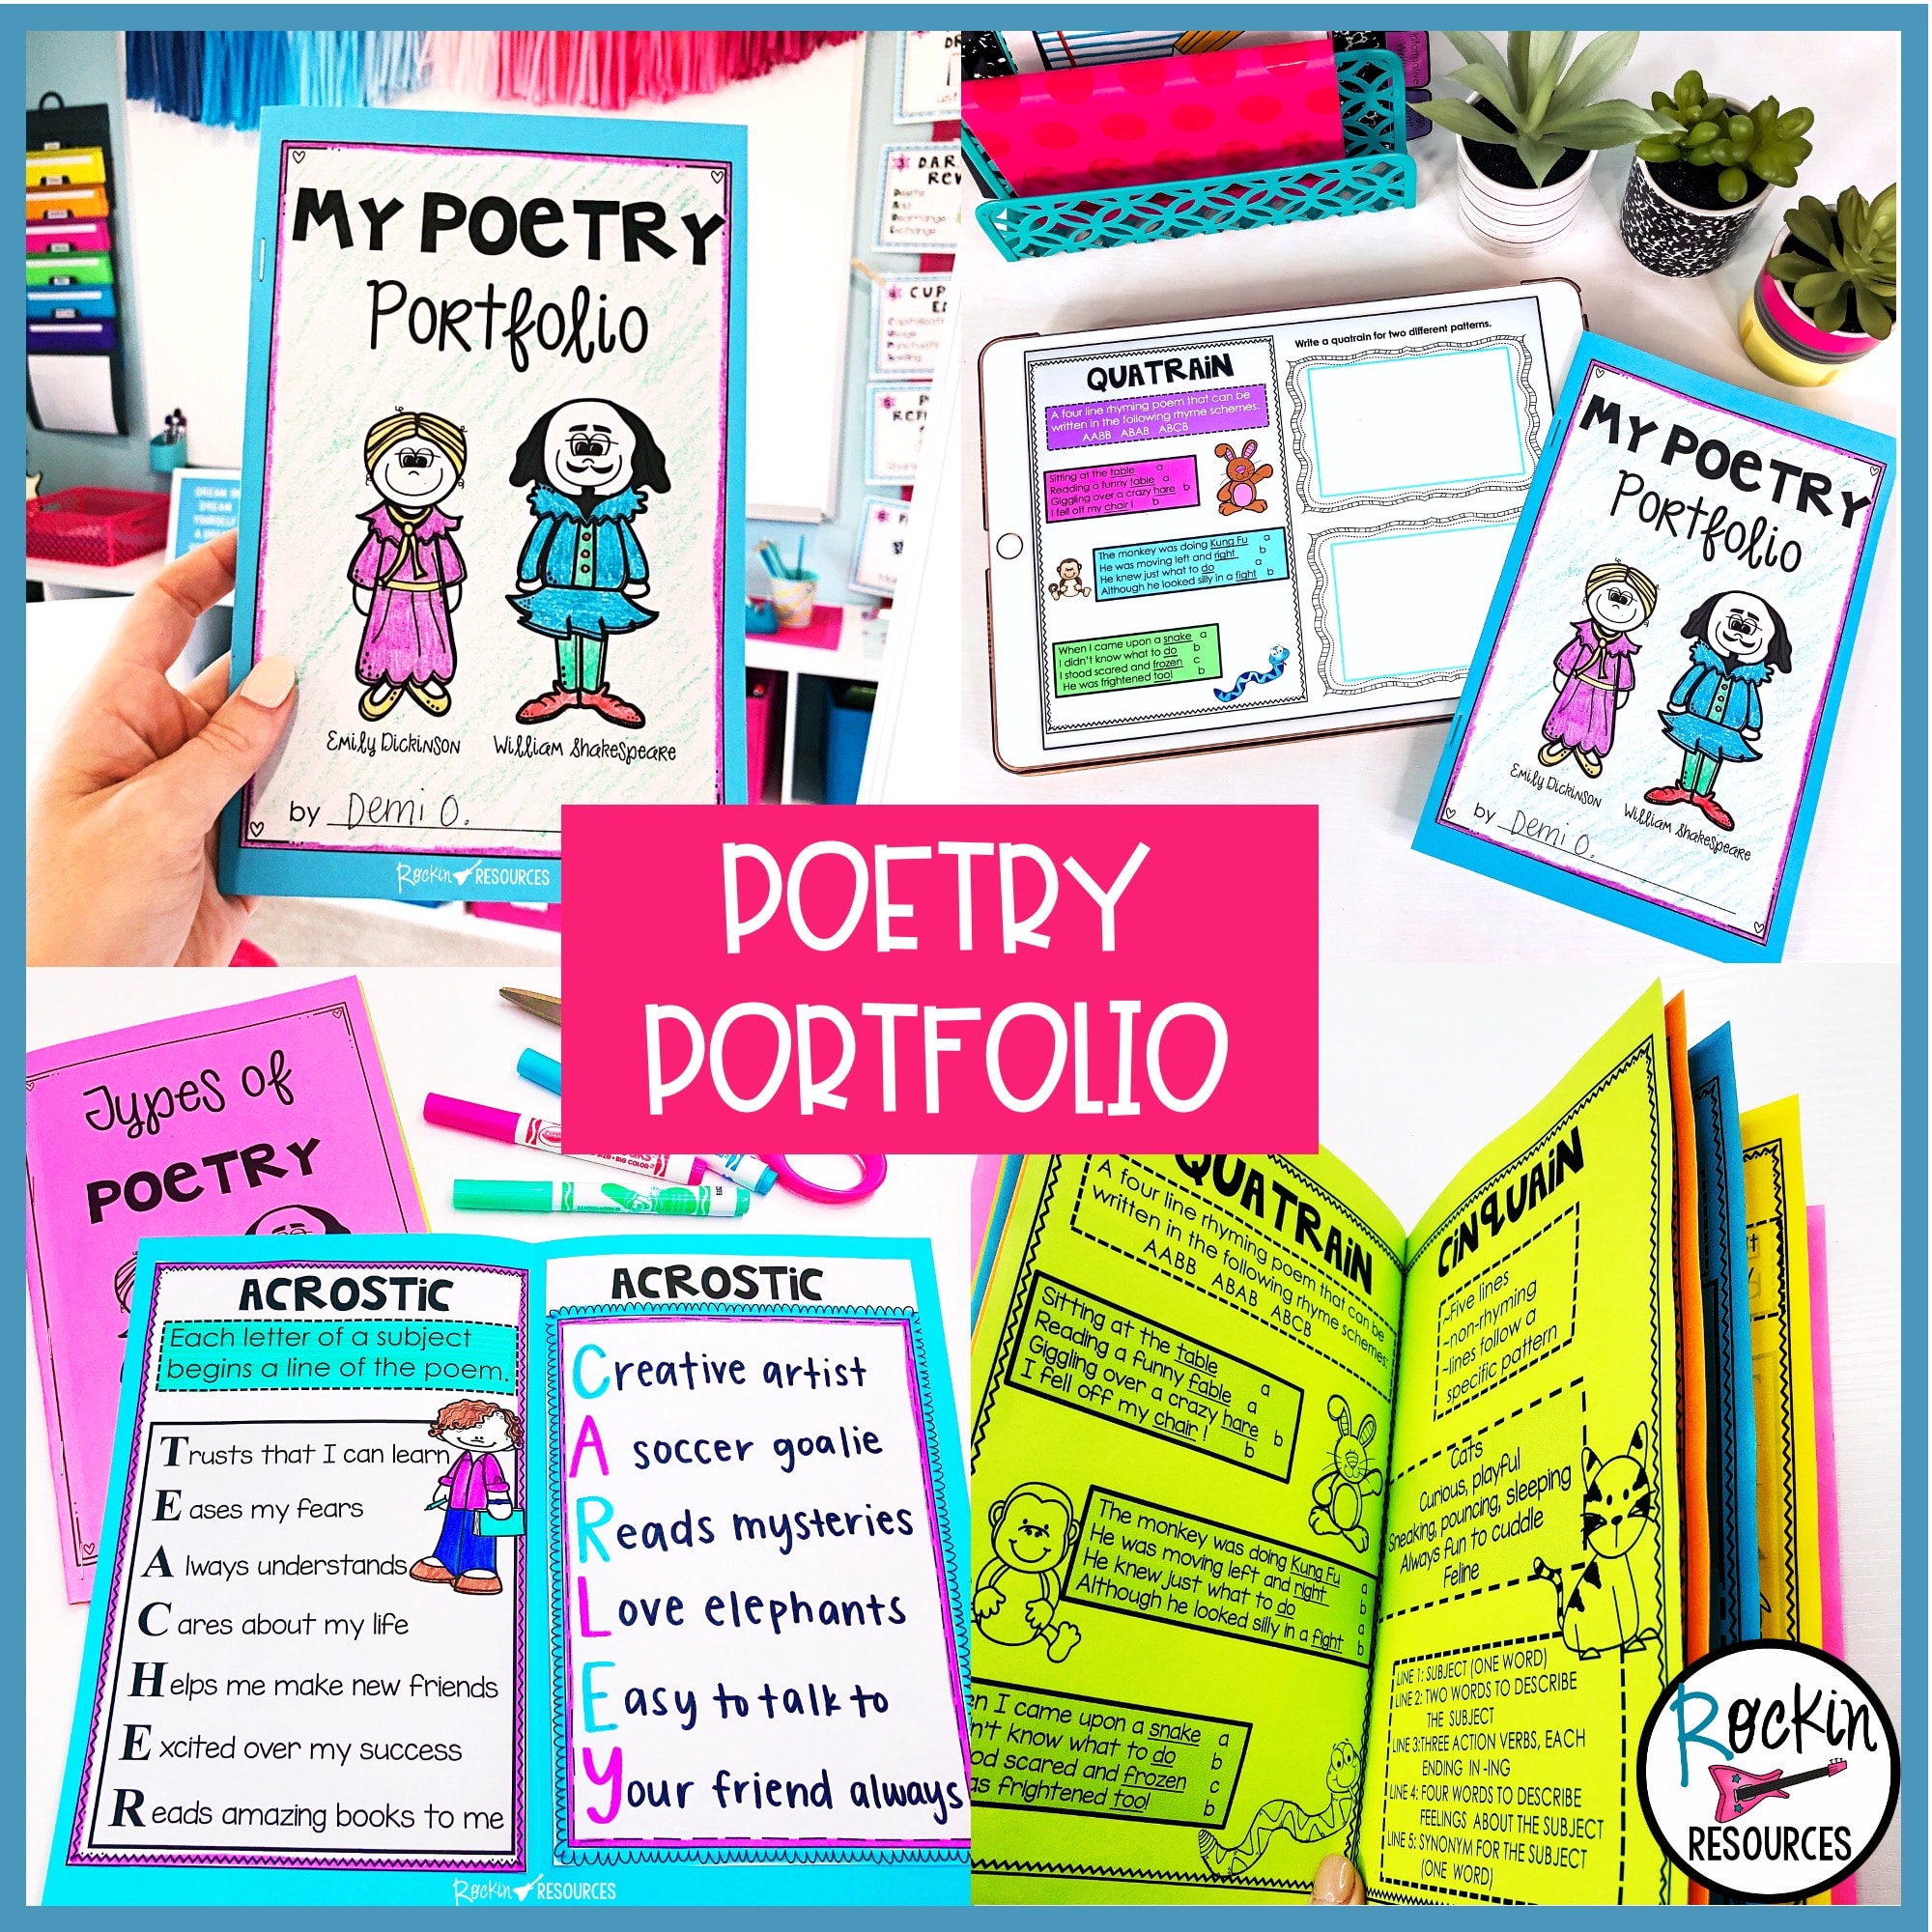 MY POETRY
Portfolio
Emily Dickinson William Shakespeare
by Demi O.
Rockin RESOURCES
QUATRAIN
A four line rhyming poem that can be
written in the following rhyme schemes:
AABB ABAB ABCB
Sitting at the table a
Reading a funny fable a
Giggling over a crazy hare b
I fell off my chair ! b
The monkey was doing Kung Fu a
He was moving left and right b
He knew just what to do a
Although he looked silly in a fight b
When I came upon a snake a
I didn't know what to do b
I stood scared and frozen c
He was frightened too! b
Write a quatrain for two different patterns.
MY POETRY
Portfolio
Emily Dickinson William Shakespeare
by Demi O.
POETRY
PORTFOLIO
Types of
POETRY
ACROSTIC
Each letter of a subject
begins a line of the poem.
Trusts that I can learn
Eases my fears
Always understands
Cares about my life
Helps me make new friends
Excited over my success
Reads amazing books to me
ACROSTIC
Creative artist
A soccer goalie
Reads mysteries
Love elephants
Easy to talk to
Your friend always
Rockin RESOURCES
QUATRAIN
A four line rhyming poem that can be
written in the following rhyme schemes:
AABB ABAB ABCB
Sitting at the table a
Reading a funny fable a
Giggling over a crazy hare b
I fell off my chair ! b
The monkey was doing Kung Fu a
He was moving left and right b
He knew just what to do a
Although he looked silly in a fight b
I came upon a snake a
know what to do b
scared and frozen c
frightened too! b
CINQUAIN
~Five lines
~non-rhyming
~lines follow a
specific pattern
Cats
Curious, playful
Sneaking, pouncing, sleeping
Always fun to cuddle
Feline
LINE 1: SUBJECT (ONE WORD)
LINE 2: TWO WORDS TO DESCRIBE
THE SUBJECT
LINE 3:THREE ACTION VERBS, EACH
ENDING IN -ING
LINE 4: FOUR WORDS TO DESCRIBE
FEELINGS ABOUT THE SUBJECT
LINE 5: SYNONYM FOR THE SUBJECT
(ONE WORD)
Rockin
RESOURCES